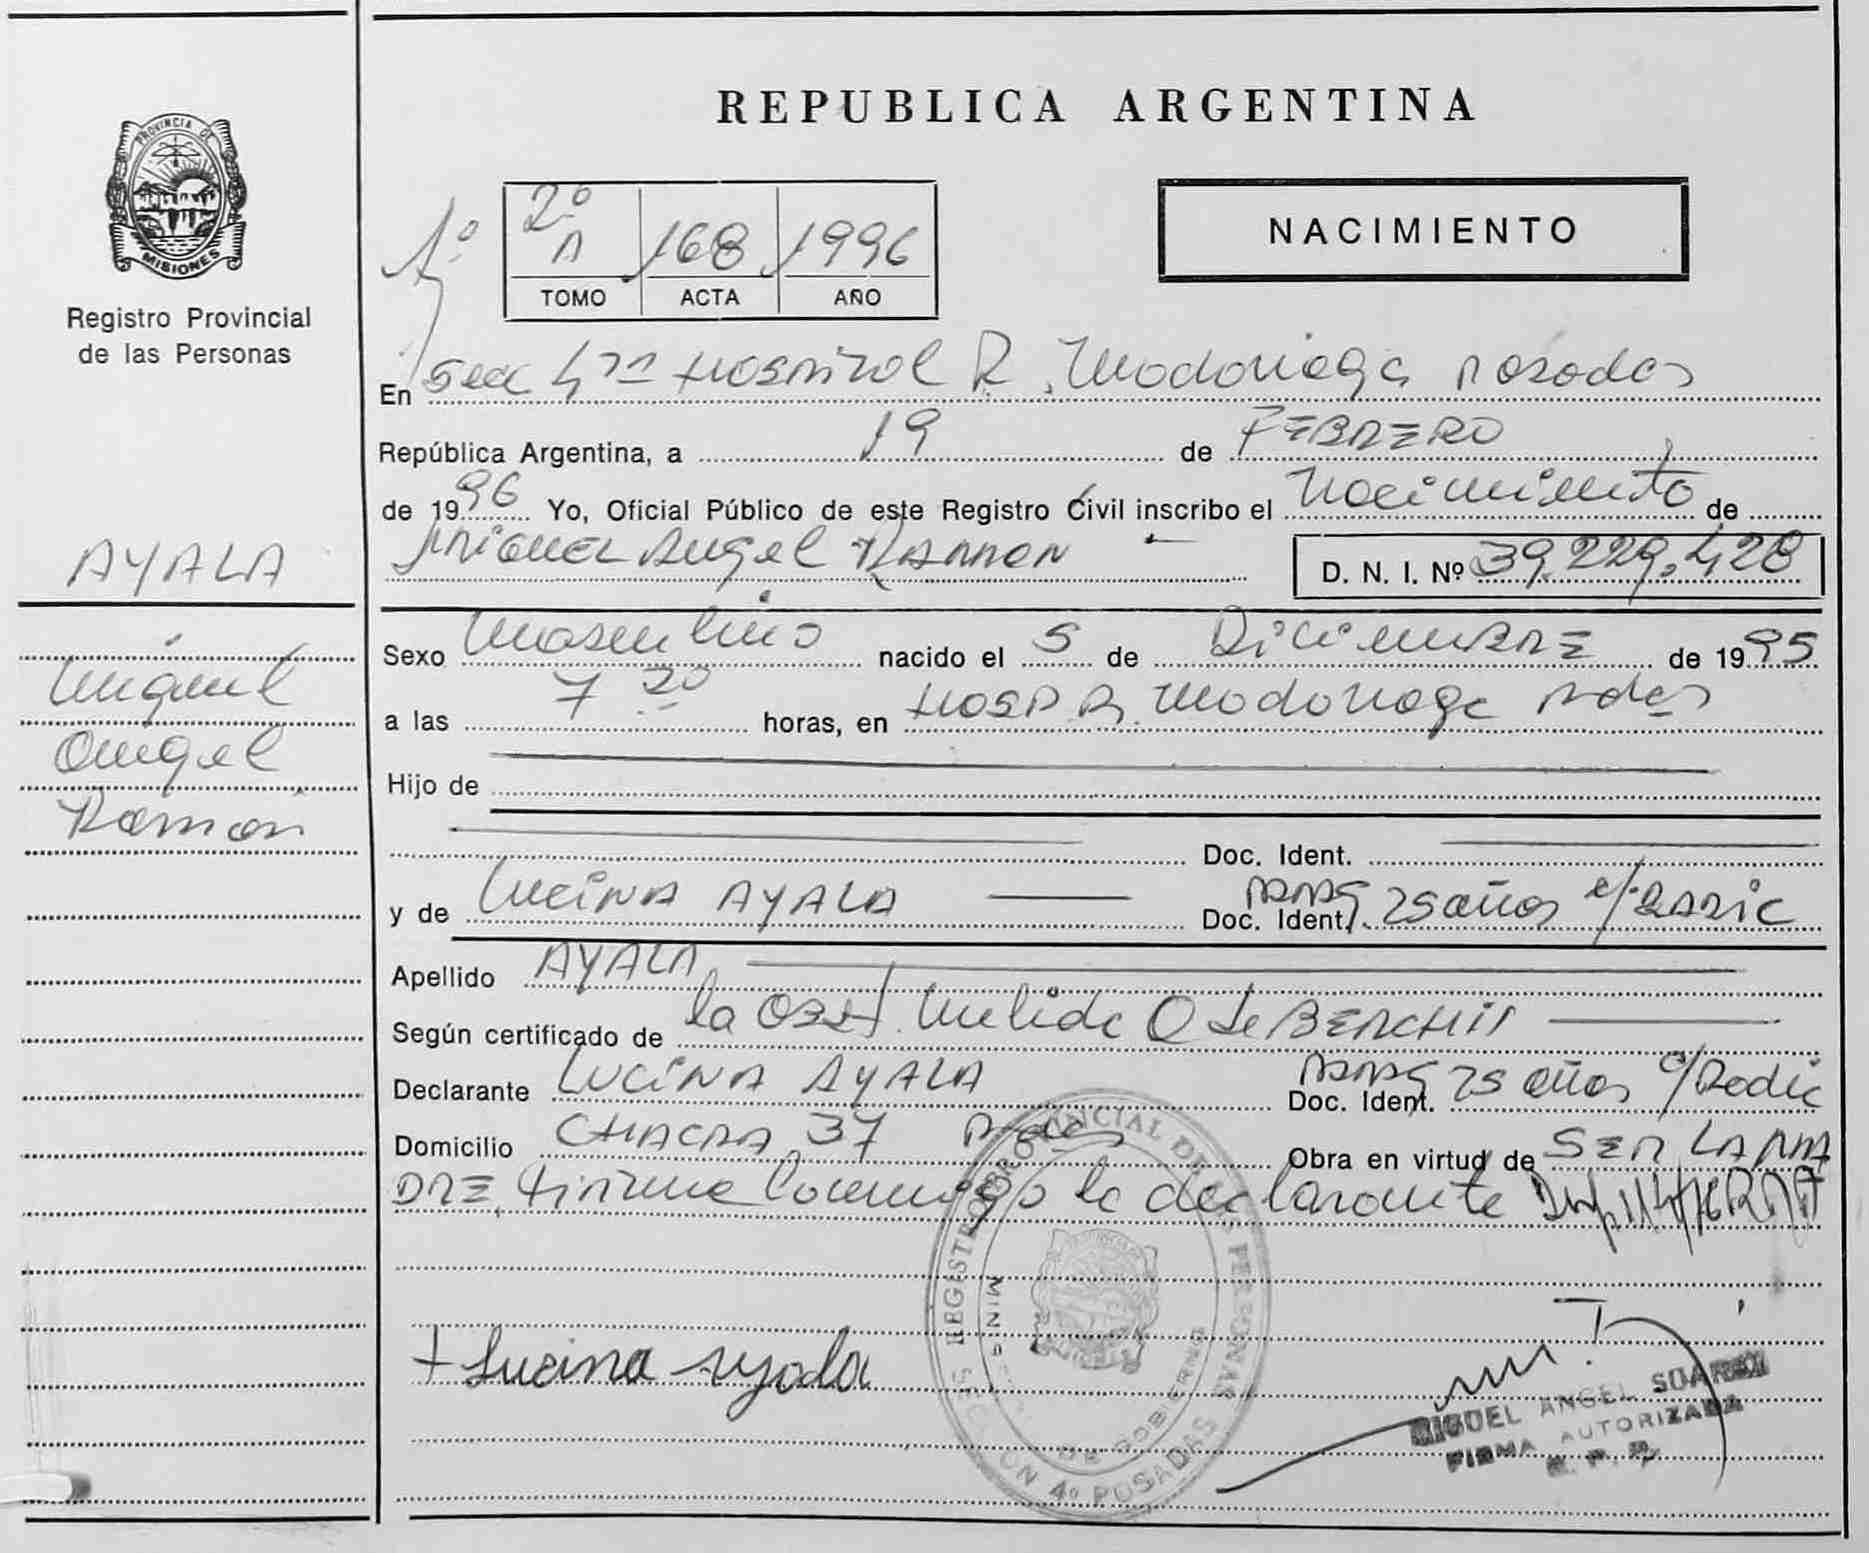 PROVINCIA DE
MISIONES
Registro Provincial
de las Personas
AYALA
Miguel
Angel
Ramon
REPUBLICA ARGENTINA
1º
2º A 168 1996
TOMO ACTA AÑO
NACIMIENTO
En Secc 4ta Hospital R. Madariaga Posadas
República Argentina, a 19 de FEBRERO
de 1996 Yo, Oficial Público de este Registro Civil inscribo el Nacimiento de
MIGUEL Angel RAMON D. N. I. Nº 39.229.428
Sexo Masculino nacido el 5 de DiciemBRE de 1995
a las 7 20 horas, en HOSP R. Madariaga Pdas
Hijo de
Doc. Ident.
y de LUCINA AYALA Doc. Ident. 25 años
Apellido AYALA
Según certificado de la Obst. Melida
Declarante LUCINA AYALA Doc. Ident. 25 años
Domicilio CHACRA 37 Pdas Obra en virtud de SER LA MA
DRE, Firma Conmigo la declarante
+ Lucina Ayala
REGISTRO PROVINCIAL DE LAS PERSONAS
MINISTERIO DE GOBIERNO
SECCION 4º POSADAS
MIGUEL ANGEL SUAREZ
FIRMA AUTORIZADA
R. P. P.